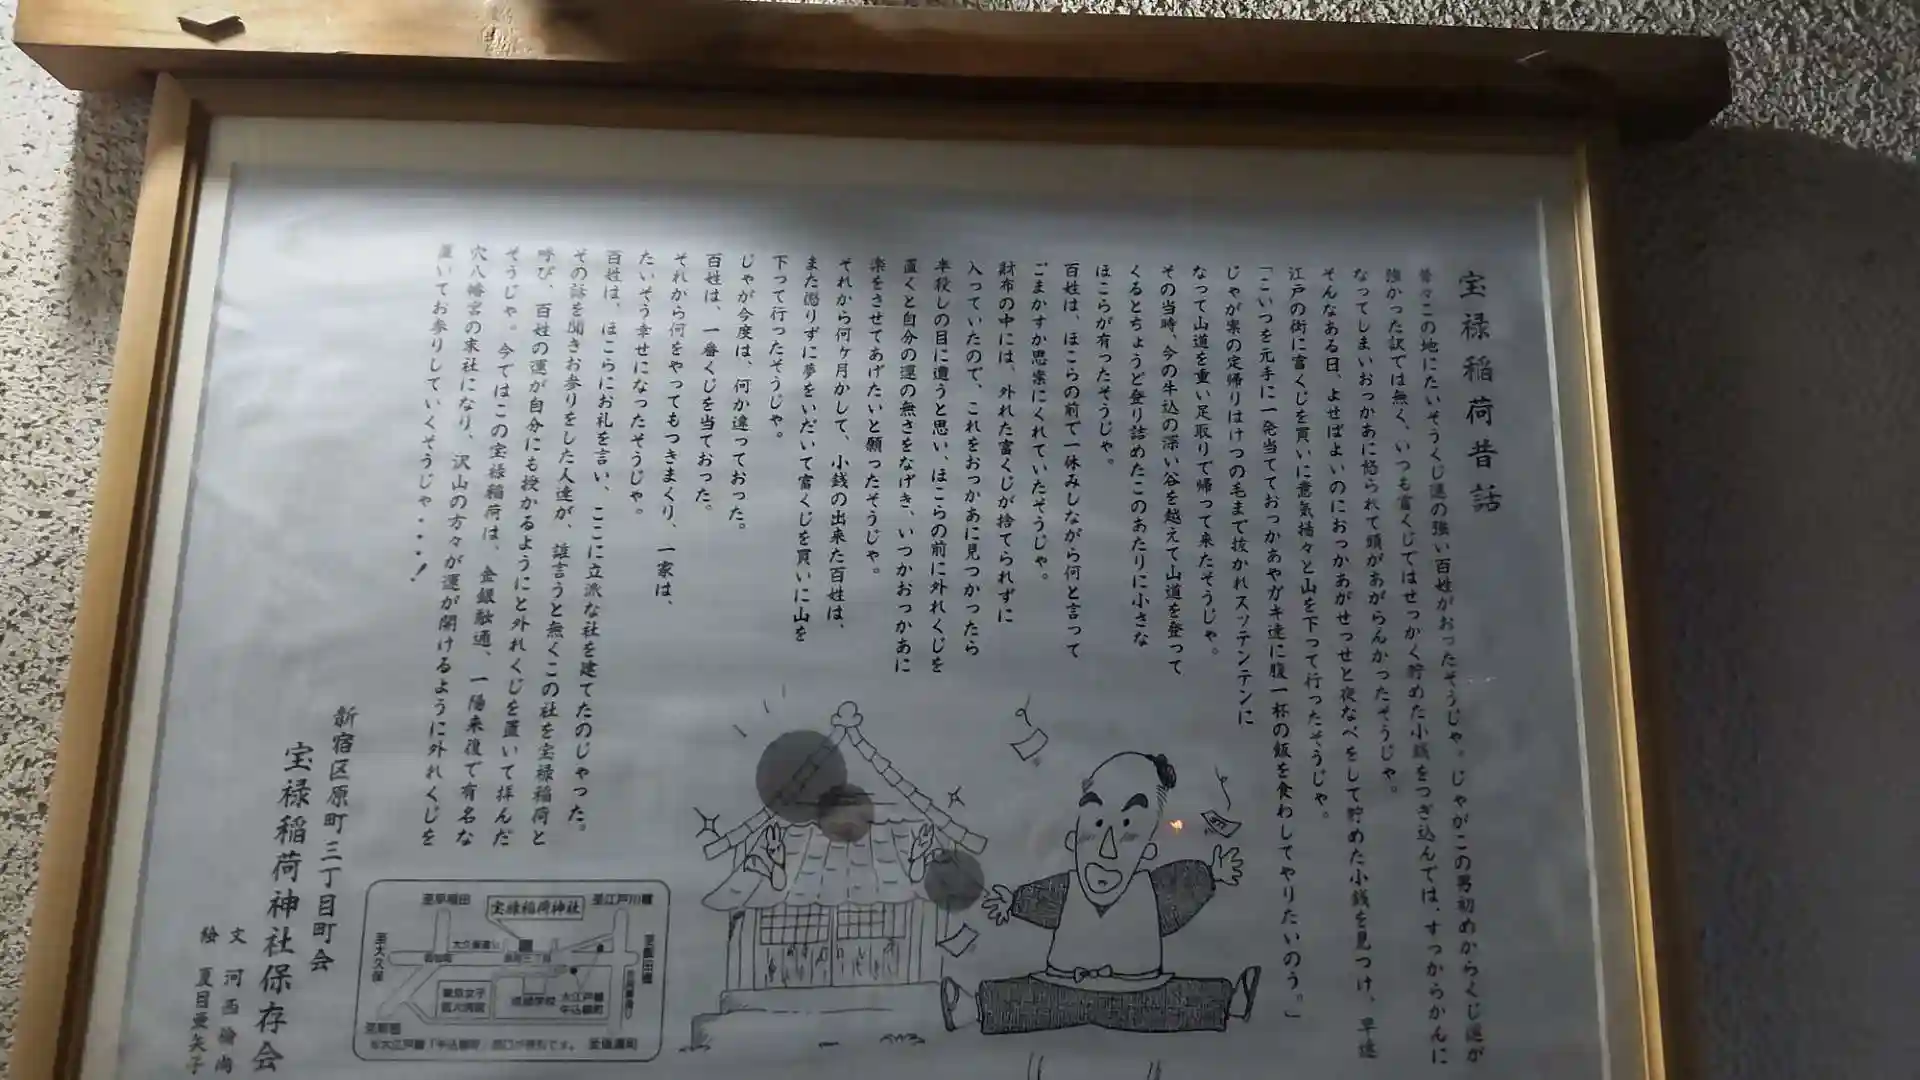 宝禄稲荷昔話
昔々この地にたいそうくじ運の強い百姓がおったそうじゃ。じゃがこの男初めからくじ運が
強かった訳では無く、いつも富くじではせっかく貯めた小銭をつぎ込んでは、すっからかんに
なってしまいおっかあに怒られて頭があがらんかったそうじゃ。
そんなある日、よせばよいのにおっかあがせっせと夜なべをして貯めた小銭を見つけ、早速
江戸の街に富くじを買いに意気揚々と山を下って行ったそうじゃ。
「こいつを元手に一発当てておっかあやガキ達に腹一杯の飯を食わしてやりたいのう。」
じゃが案の定帰りはけつの毛まで抜かれスッテンテンに
なって山道を重い足取りで帰って来たそうじゃ。
その当時、今の牛込の深い谷を越えて山道を登って
くるとちょうど登り詰めたこのあたりに小さな
ほこらが有ったそうじゃ。
百姓は、ほこらの前で一休みしながら何と言って
ごまかすか思案にくれていたそうじゃ。
財布の中には、外れた富くじが捨てられずに
入っていたので、これをおっかあに見つかったら
半殺しの目に遭うと思い、ほこらの前に外れくじを
置くと自分の運の無さをなげき、いつかおっかあに
楽をさせてあげたいと願ったそうじゃ。
それから何ヶ月かして、小銭の出来た百姓は、
また懲りずに夢をいだいて富くじを買いに山を
下って行ったそうじゃ。
じゃが今度は、何か違っておった。
百姓は、一番くじを当ておった。
それから何をやってもつきまくり、一家は、
たいそう幸せになったそうじゃ。
百姓は、ほこらにお礼を言い、ここに立派な社を建てたのじゃった。
その話を聞きお参りをした人達が、誰言うと無くこの社を宝禄稲荷と
呼び、百姓の運が自分にも授かるようにと外れくじを置いて拝んだ
そうじゃ。今ではこの宝禄稲荷は、金銀融通、一陽来復で有名な
穴八幡宮の末社になり、沢山の方々が運が開けるように外れくじを
置いてお参りしていくそうじゃ・・・・!
新宿区原町三丁目町会
宝禄稲荷神社保存会
文 河西
絵 夏目亜矢子
至早稲田
宝禄稲荷神社
至江戸川橋
至大久保
大久保通り
至飯田橋
原町三丁目
東京女子
医大病院
成城学校
大江戸線
牛込柳町
至新宿